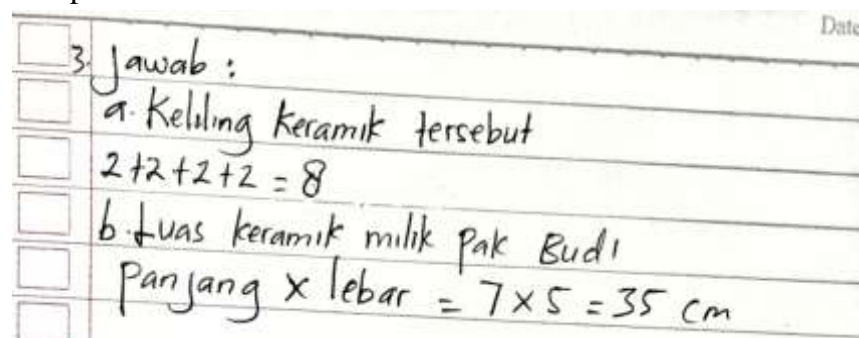 Date
3. Jawab :
a. Keliling keramik tersebut
2+2+2+2 = 8
b. Luas keramik milik Pak Budi
Panjang x lebar = 7x5 = 35 cm